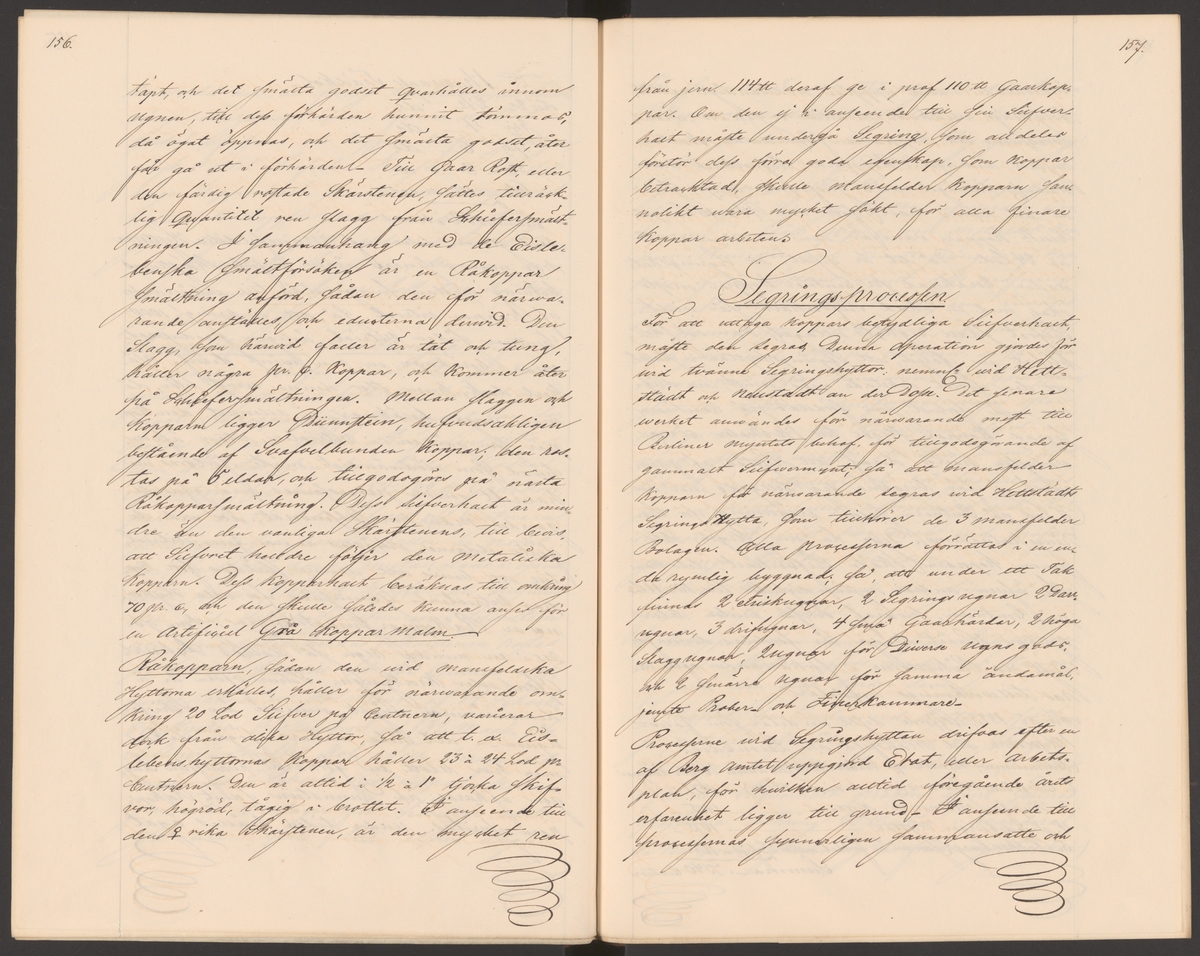 156.
täpt, och det smälta godset qvarhålles innom
ugnen, till dess förhärden hunnit tömmas,
då ögat öppnas, och det smälta godset åter
får gå ut i förhärden. Till Gaar Rost, eller
den färdig rostade Skärstenen, sättes tillräck-
lig Quantitet ren slagg från Schiefersmält-
ningen. I sammanhang med de Eisle-
benska smältförsöken är en Råkoppar
smältning anförd, sådan den för närwa-
rande anställes, och educterna derwid. Den
Slagg, som härwid faller är tät och tung,
håller några pr. c. Koppar, och kommer åter
på Schiefersmältningen. Mellan slaggen och
Kopparn ligger Dünnstein, hufvudsakligen
bestående af Svafvelbunden Koppar; den ros-
tas på 5 eldar, och tillgodogöres på nästa
Råkopparsmältning. Dess silfverhalt är min-
dre än den vanliga Skärstenens, till bevis,
att Silfvret hälldre följer den metalliska
Kopparn. Dess kopparhalt beräknas till omkring
70 pr. c., och den skulle således kunna anses för
en Artificiel Grå Koppar Malm.
Råkopparn, sådan den wid Mansfeldska
Hyttorna erhålles, håller för närwarande om-
kring 20 Lod Silfver på Centnern, varierar
dock från olika Hyttor, så att t. ex. Eis-
lebenshyttornas Koppar håller 23 à 24 Lod pr
Centnern. Den är altid i 1/2 à 1" tjocka skif-
vor, högröd, tågig i brottet. I anseende till
den ♀ rika Skärstenen, är den mycket ren
157.
från jern. 114 ℔ deraf ge i prof 110 ℔ Gaarkop-
par. Om den ej i anseende till sin Silfver-
halt måste undergå Segring, som alldeles
förstör dess förra goda egenskap, som Koppar
betracktad, skulle Mansfelder Kopparn san-
nolikt wara mycket sökt, för alla finare
Koppar arbeten.
Segrings-processen.
För att uttaga Koppars betydliga Silfverhalt,
måste den segras. Denna operation gjordes för
wid tvänne Segringshyttor, nemligen wid Hett-
städt och Neustadt an der Dosse. Det senare
werket användes för närwarande mest till
Berliner myntets behof, för tillgodogörande af
gammalt Silfvermynt, så att Mansfelder
Kopparn för närwarande segras wid Hettstädts
Segrings Hytta, som tillhörer de 3 Mansfelder
Bolagen. Alla processerna förrättas i en en-
da rymlig byggnad, så, att under ett Tak
finnas 2 Friskugnar, 2 Segrings ugnar 2 Darr
ugnar, 3 drifugnar, 4 små Gaarhärdar, 2 höga
Slaggugnar, 2 ugnar för Diverse ugns gods,
och 2 smärre ugnar för samma ändamål,
jemte Prober- och Finerkammare.
Processerne wid Segringshyttan drifvas efter en
af Berg Amtet uppgjord Etat, eller arbets-
plan, för hvilken alltid föregående årets
erfarenhet ligger till grund. I anseende till
processernas synnerligen sammansatte och